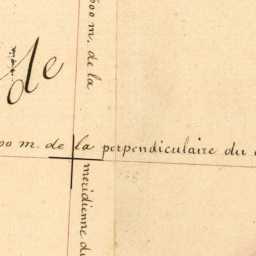 600 m. de la
de
00 m. de la perpendiculaire du
meridienne du